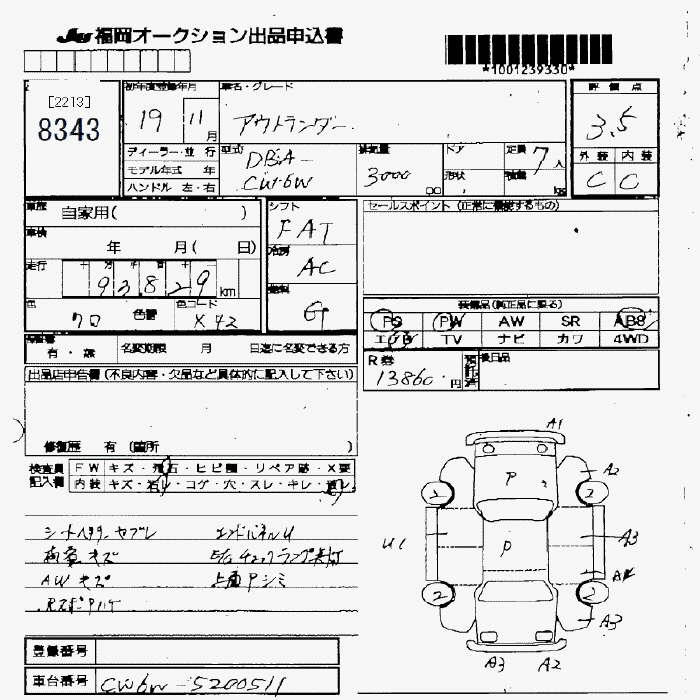 JU福岡オークション出品申込書
*1001239330*
[2213]
8343
初年度登録年月
19 11月
車名・グレード
アウトランダー
評価点
3.5
外装 内装
C C
ディーラー・並行
モデル年式 年
ハンドル 左・右
型式
DBA-
CW6W
排気量
3000 cc
ドア
形状
定員 7人
積載 kg
車歴
自家用( )
車検
年 月( 日)
走行
十 万 千 百 十
93829 km
色
クロ
色替
色コード
X42
シフト
FAT
冷房
AC
燃料
G
セールスポイント(正常に機能するもの)
装備品(純正品に限る)
PS PW AW SR ABS
エアB TV ナビ カワ 4WD
有・無 名変期限 月 日迄に名変できる方
R券
13860円
預託済
後日品
出品店申告欄(不良内容・欠品など具体的に記入して下さい)
修復歴 有(箇所 )
検査員
記入欄
FW キズ・飛石・ヒビ・リペア跡・X要
内装 キズ・汚レ・コゲ・穴・スレ・キレ
シートヘタリ ヤブレ
エンドパネルU
キズ
E/Gチェックランプ点灯
AWキズ
上面Pシミ
RスポPハゲ
A1
P
A2
2 2
U1
P
A3
2 2
A3
A3 A2
登録番号
車台番号 CW6W-5200511